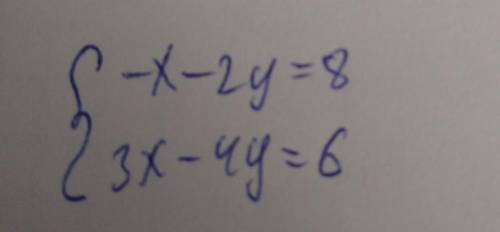 -x-2y=8
3x-4y=6